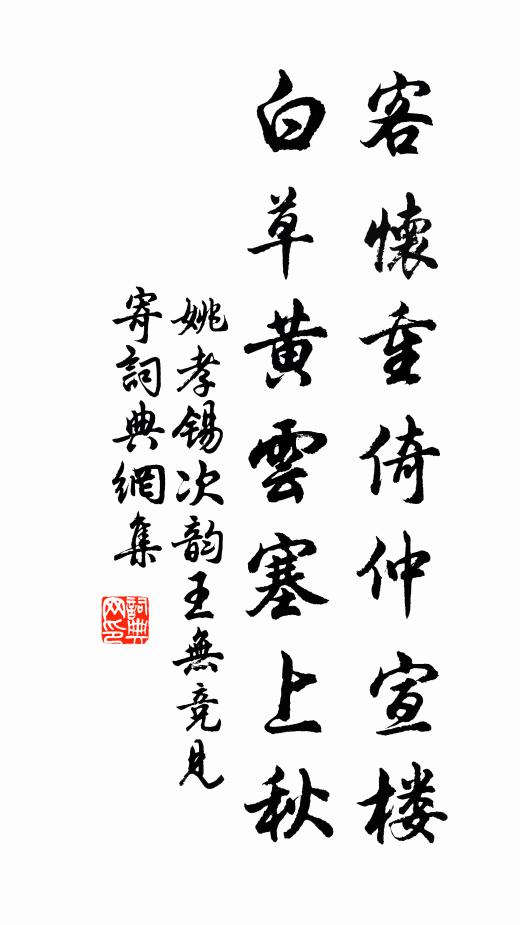 客懷重倚仲宣楼
白草黃雲塞上秋
姚孝錫次韵王無竞見
寄詞典網集
詞典网印